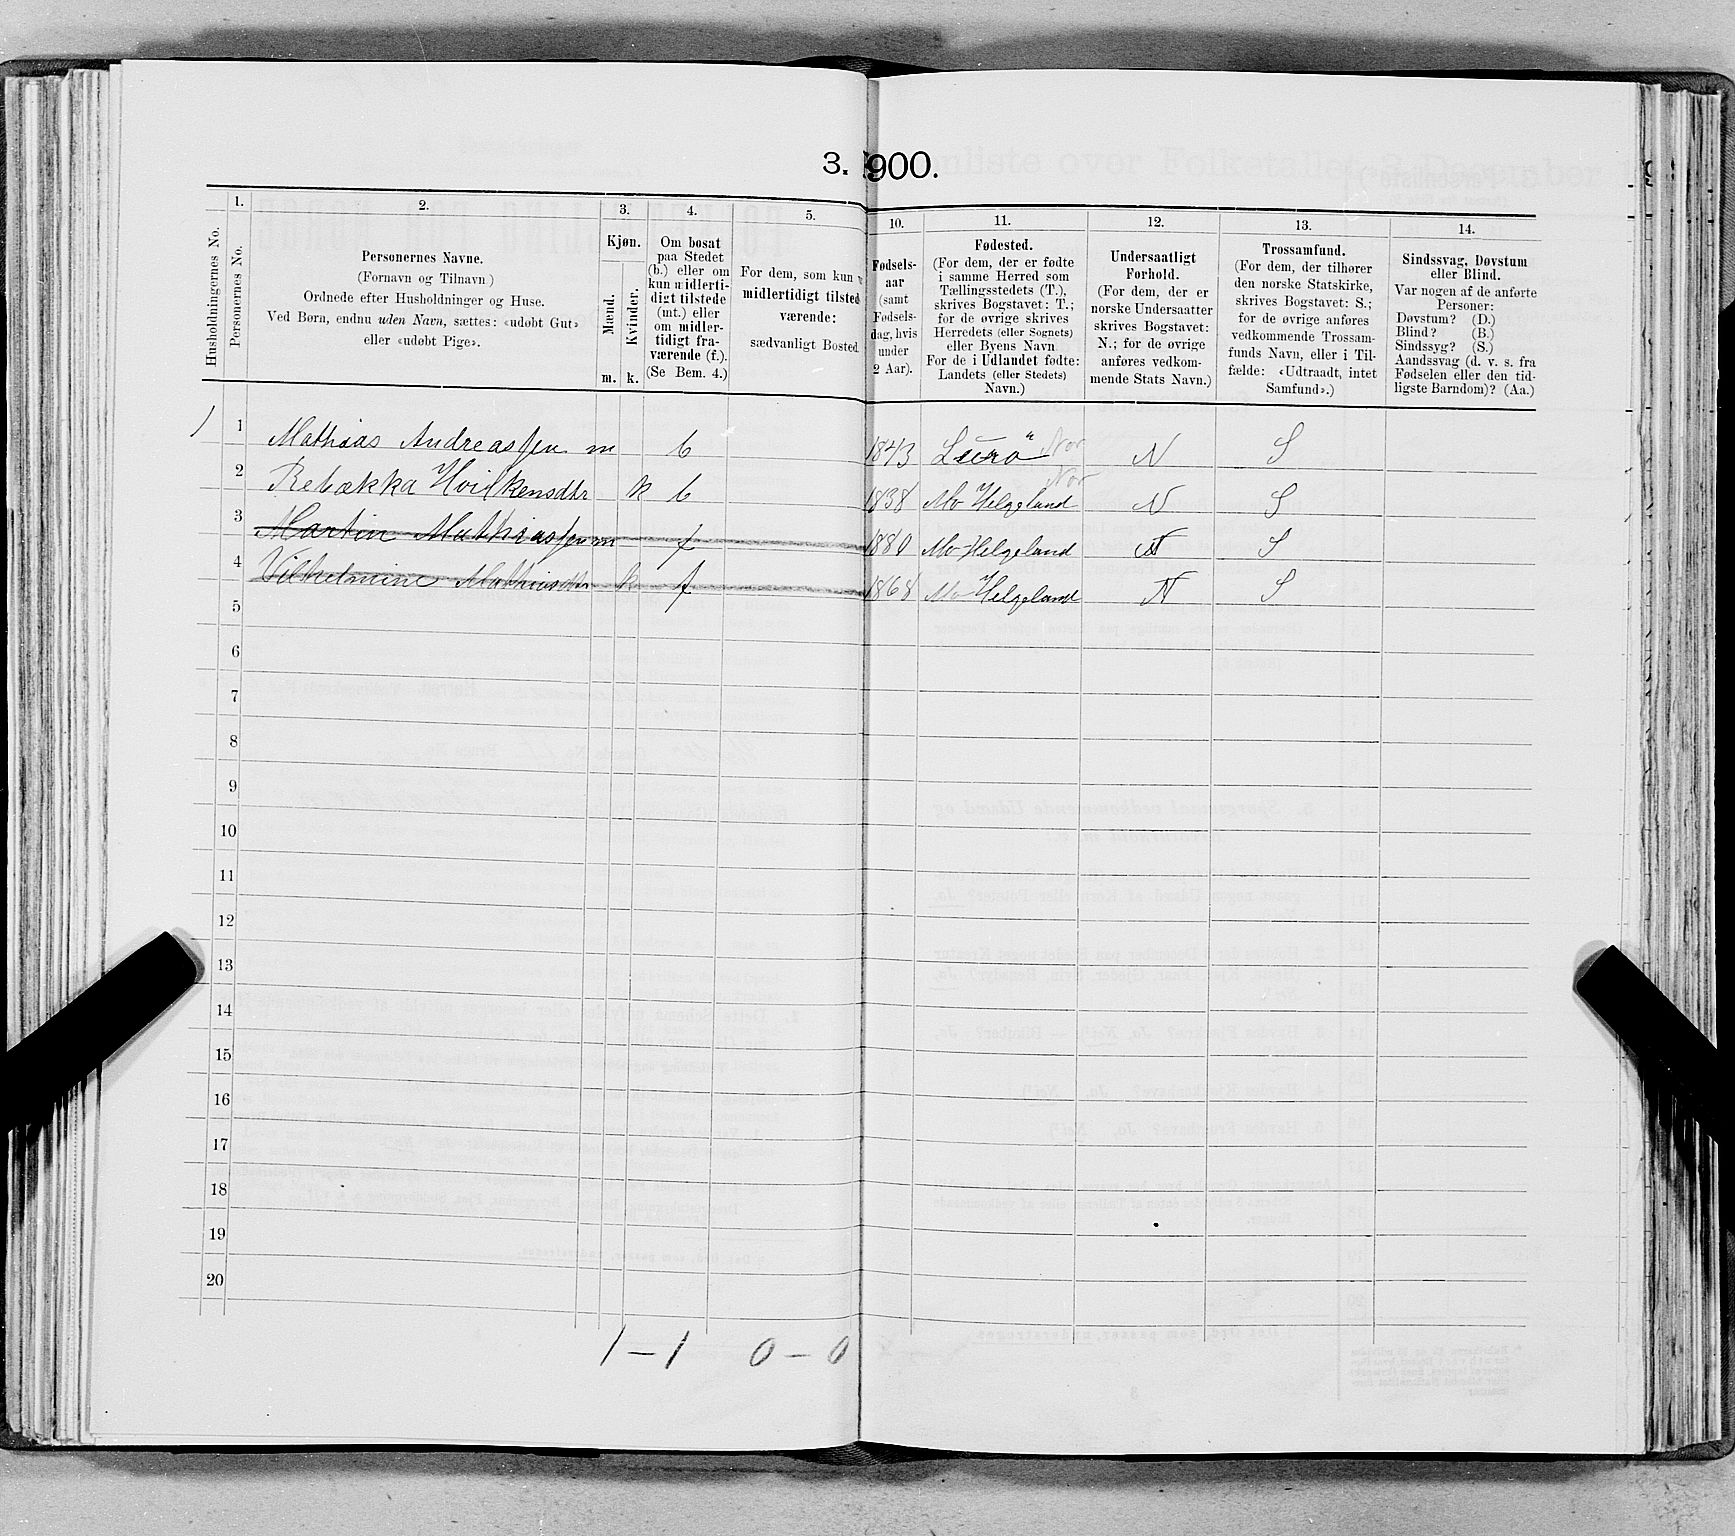 3. 900.
1.
2.
3.
4.
5.
10.
11.
12.
13.
14.
Husholdningernes No.
Personernes No.
Personernes Navne.
(Fornavn og Tilnavn)
Ordnede efter Husholdninger og Huse.
Ved Børn, endnu uden Navn, sættes: «udøbt Gut»
eller «udøbt Pige».
Kjøn.
Mænd.
Kvinder.
m. k.
Om bosat
paa Stedet
(b.) eller om
kun midlerti-
digt tilstede
(mt.) eller
om midler-
tidigt fra-
værende (f.).
(Se Bem. 4.)
For dem, som kun
midlertidigt tilsted
værende:
sædvanligt Bosted.
Fødsels-
aar
(samt
Fødsels-
dag, hvis
under
2 Aar).
Fødested.
(For dem, der er fødte
i samme Herred som
Tællingsstedets (T.),
skrives Bogstavet: T.;
for de øvrige skrives
Herredets (eller Sognets)
eller Byens Navn
For de i Udlandet fødte:
Landets (eller Stedets)
Navn.)
Undersaatligt
Forhold.
(For dem, der er
norske Undersaatter
skrives Bogstavet:
N.; for de øvrige
anføres vedkom-
mende Stats Navn.)
Trossamfund.
(For dem, der tilhører
den norske Statskirke,
skrives Bogstavet: S.;
for de øvrige anføres
vedkommende Trossam-
funds Navn, eller i Til-
fælde: «Udtraadt, intet
Samfund».)
Sindssvag, Døvstum
eller Blind.
Var nogen af de anførte
Personer:
Døvstum? (D.)
Blind? (B.)
Sindssyg? (S.)
Aandssvag (d. v. s. fra
Fødselen eller den tid-
ligste Barndom)? (Aa.)
1 1 Mathias Andreassen m b 1843 Lurö Nor N S
2 Rebækka Hvilkensdtr k b 1838 Mo Helgeland Nor N S
3 Martin Mathiassen m f 1880 Mo Helgeland N S
4 Vilhelmine Mathiasdtr k f 1868 Mo Helgeland N S
5
6
7
8
9
10
11
12
13
14
15
16
17
18
19
20
1 – 1 0 – 0